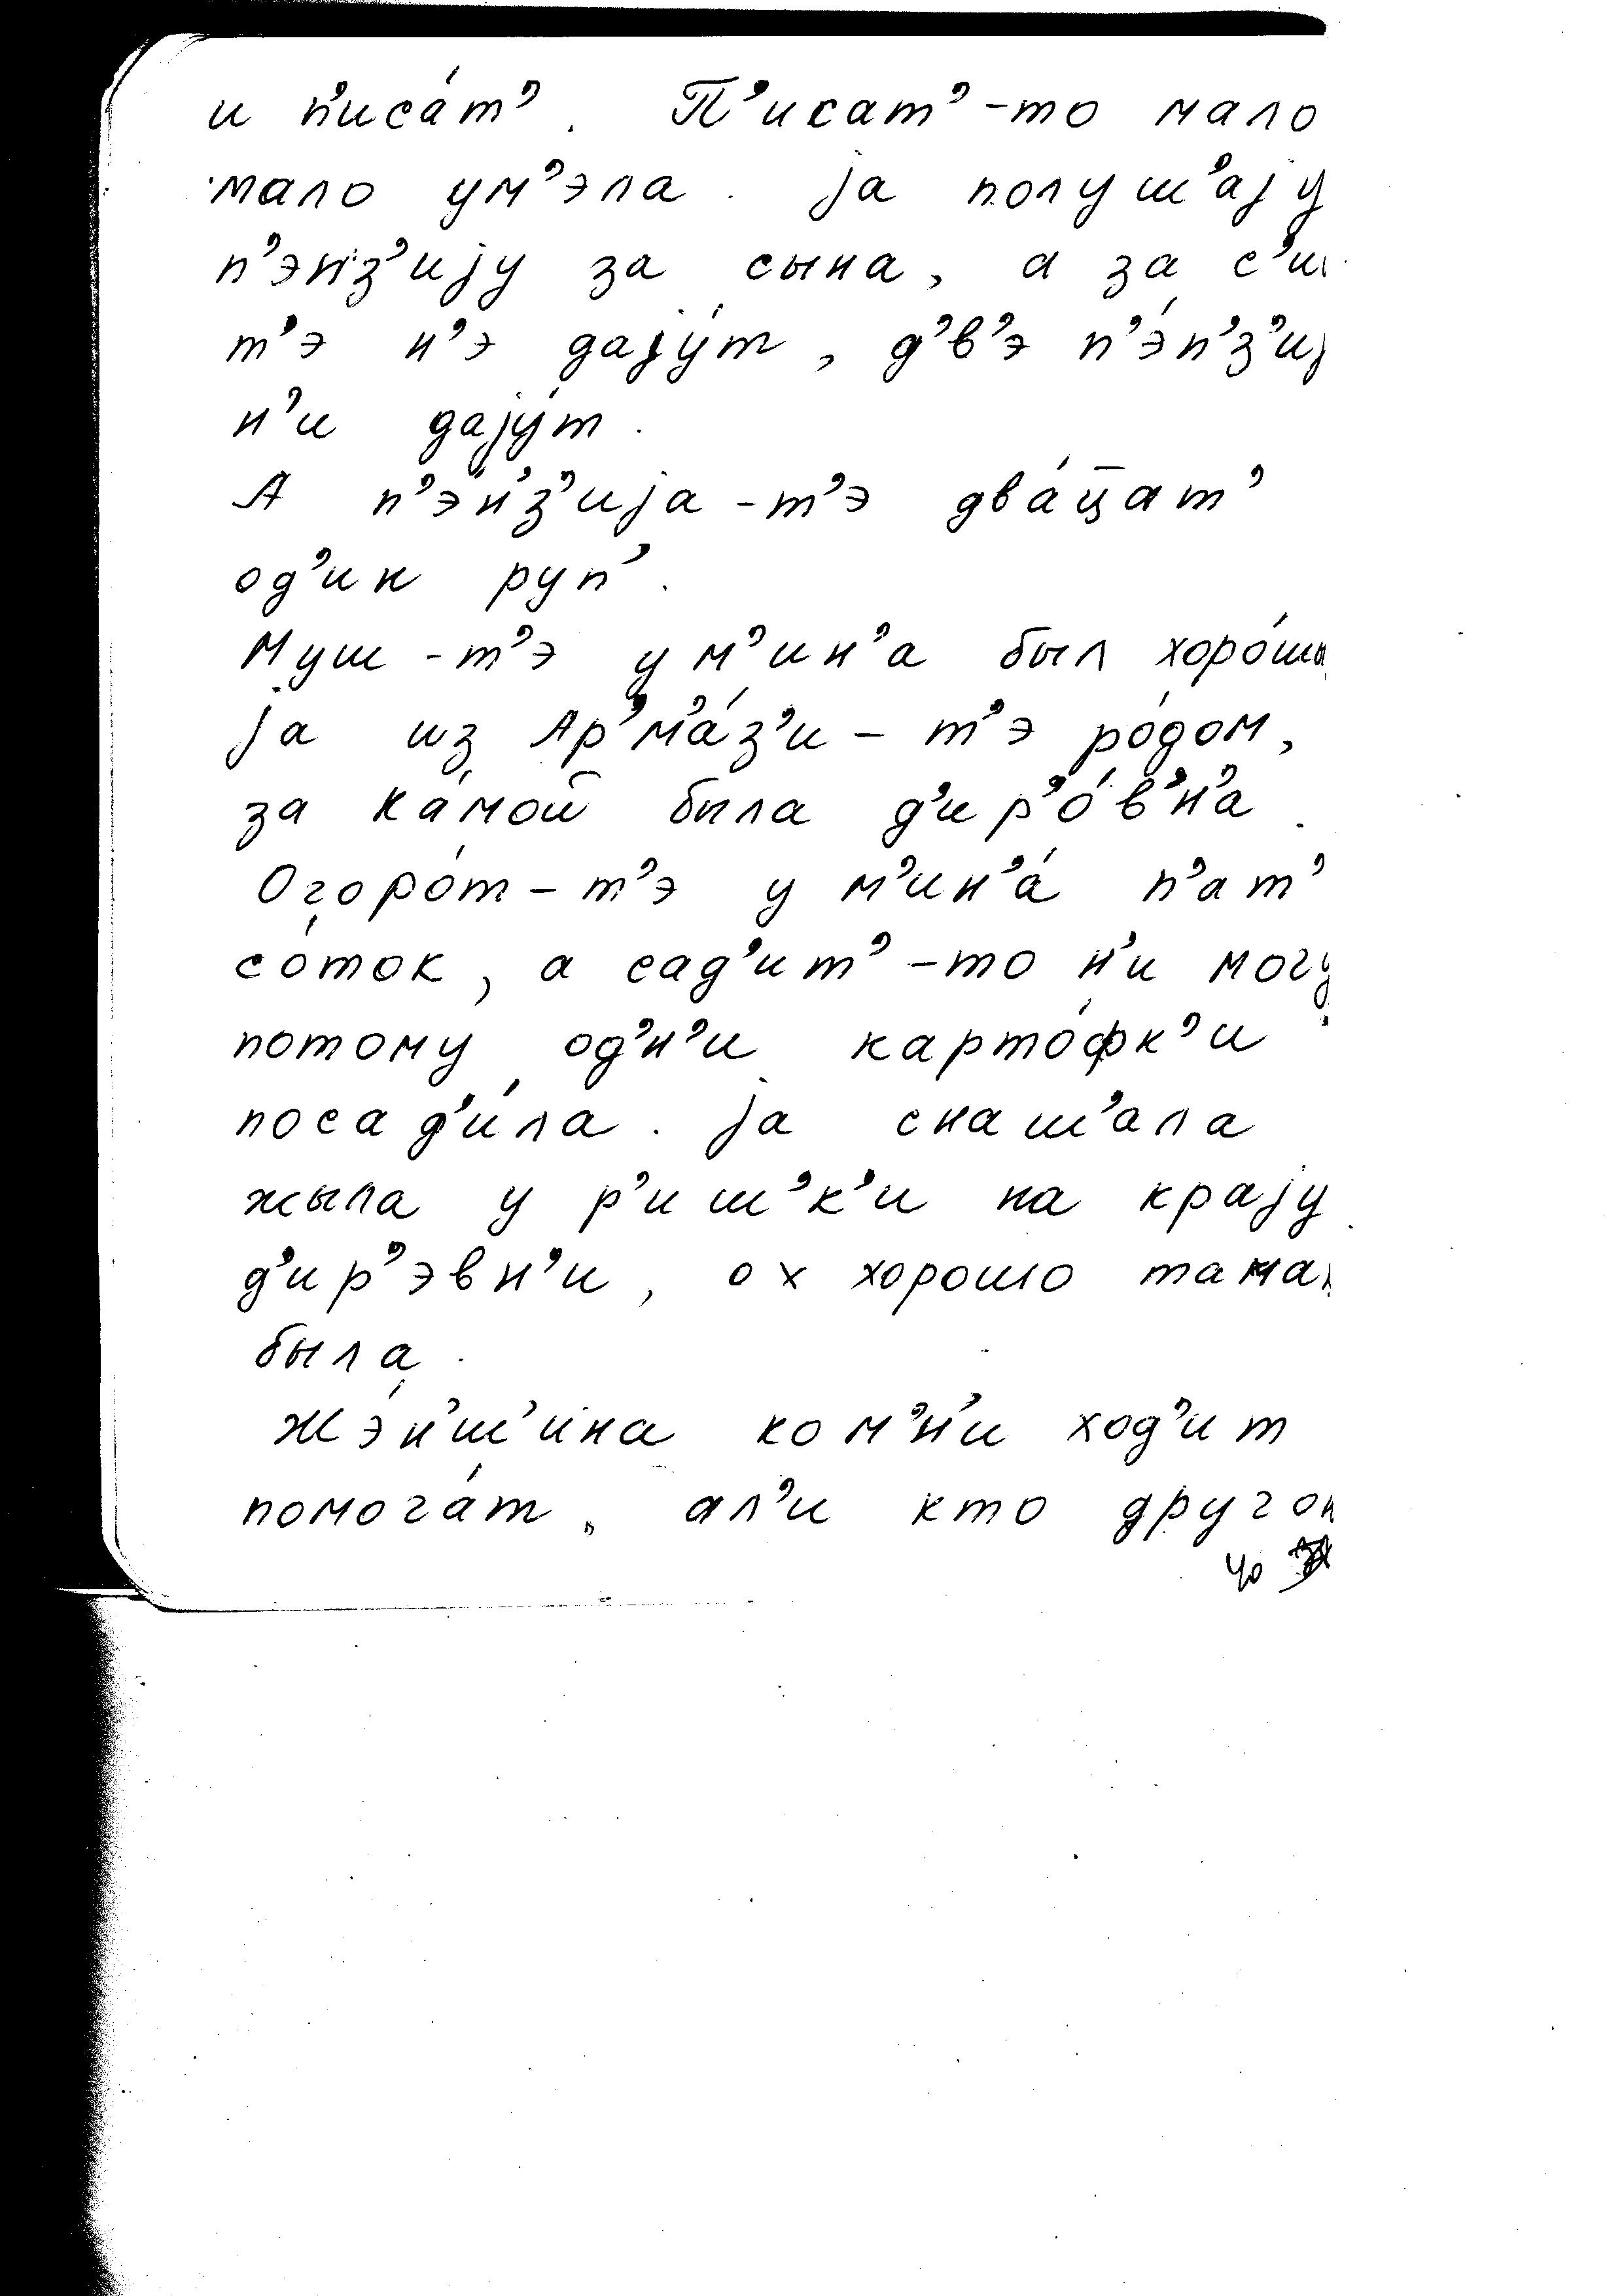 и п'иса́т'. П'исат'-то мало
мало ум'эла. ја полуш'ају
п'энз'ију за сына, а за с'и
т'э н'э дају́т, д'в'э п'э́н'з'иј
н'и дају́т.
А п'э́н'з'ија-т'э два́ц̄ат'
од'ин руп'.
Муш-т'э у м'ин'а был хоро́шы
ја из Ар'м'а́з'и-т'э ро́дом,
за Ка́мой была д'ир'о́в'н'а.
Огоро́т-т'э у м'ин'а́ п'ат'
со́ток, а сад'ит'-то н'и могу
потому од'н'и карто́фк'и
посад'и́ла. ја снаш'ала
жыла у р'иш'к'и на крају
д'ир'эвн'и, ох хорошо тама
была.
Жэ́н'ш'ина ко м'н'и ход'ит
помога́т, ал'и кто другой
40